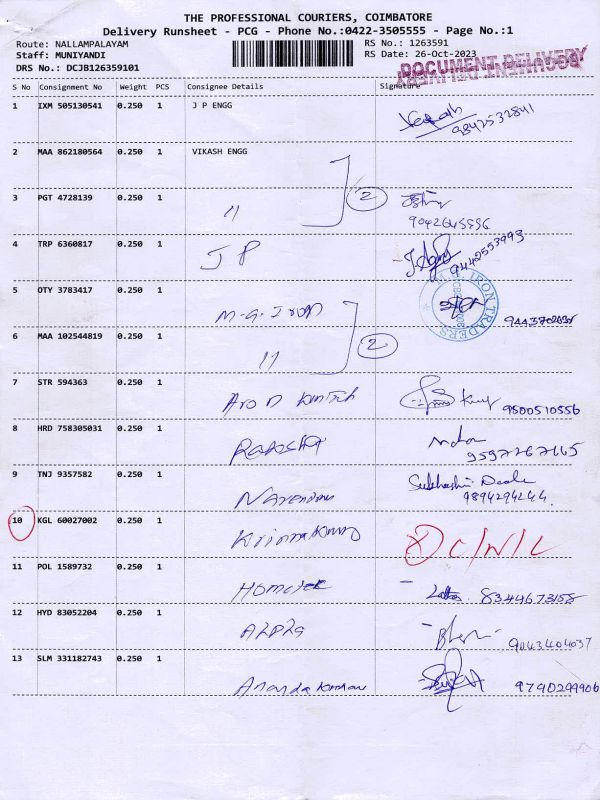 THE PROFESSIONAL COURIERS, COIMBATORE
Delivery Runsheet - PCG - Phone No.:0422-3505555 - Page No.:1
Route: NALLAMPALAYAM RS No.: 1263591
Staff: MUNIYANDI RS Date: 26-Oct-2023
DRS No.: DCJB126359101
DOCUMENT DELIVERY
S No Consignment No Weight PCS Consignee Details Signature
1 IXM 505130541 0.250 1 J P ENGG
9842532841
2 MAA 862180564 0.250 1 VIKASH ENGG
2
3 PGT 4728139 0.250 1 "
9042645556
4 TRP 6360817 0.250 1 J P
9442553993
5 OTY 3783417 0.250 1 M.G. Iron
IRON TRADERS
6 MAA 102544819 0.250 1 "
2
7 STR 594363 0.250 1
9500510556
8 HRD 758305031 0.250 1 Rakesh
9597267165
9 TNJ 9357582 0.250 1 Narendran
9894294244
10 KGL 60027002 0.250 1 Krishnakumar C/N/L
11 POL 1589732 0.250 1
8344673158
12 HYD 83052204 0.250 1 Alpha
9043404037
13 SLM 331182743 0.250 1 Anandakumar
9790299906